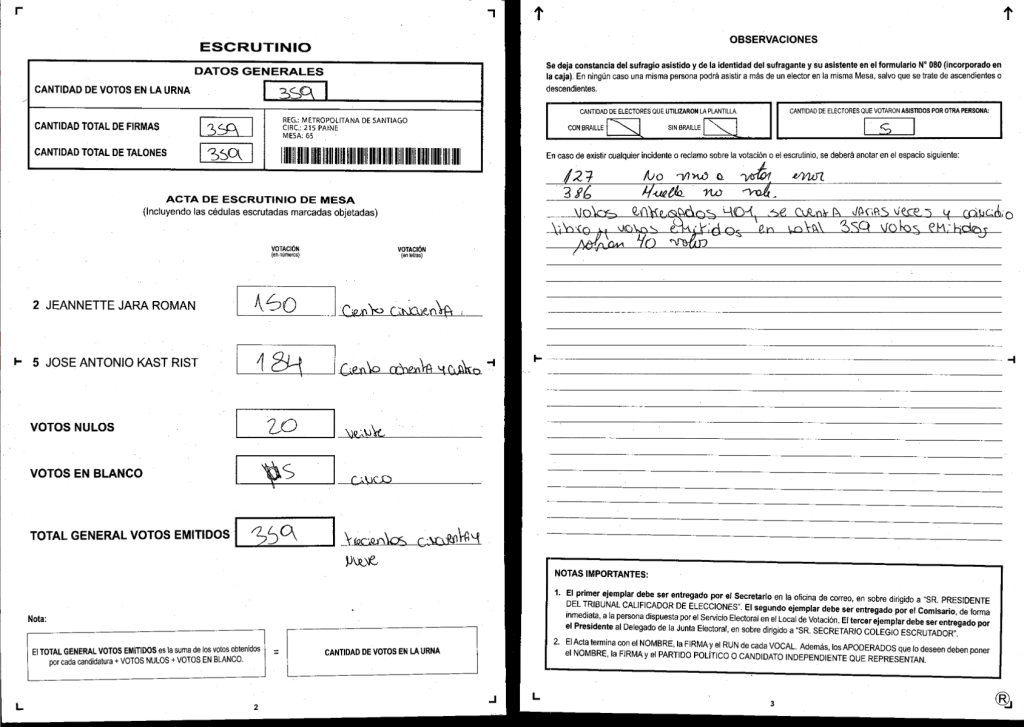 ESCRUTINIO
DATOS GENERALES
CANTIDAD DE VOTOS EN LA URNA 359
CANTIDAD TOTAL DE FIRMAS 359
CANTIDAD TOTAL DE TALONES 359
REG.: METROPOLITANA DE SANTIAGO
CIRC.: 215 PAINE
MESA: 65
ACTA DE ESCRUTINIO DE MESA
(Incluyendo las cédulas escrutadas marcadas objetadas)
VOTACIÓN
(en números)
VOTACIÓN
(en letras)
2 JEANNETTE JARA ROMAN 150 Ciento cincuenta.
5 JOSE ANTONIO KAST RIST 184 Ciento ochenta y cuatro
VOTOS NULOS 20 veinte
VOTOS EN BLANCO 5 cinco
TOTAL GENERAL VOTOS EMITIDOS 359 trecientos cincuenta y
nueve
Nota:
El TOTAL GENERAL VOTOS EMITIDOS es la suma de los votos obtenidos
por cada candidatura + VOTOS NULOS + VOTOS EN BLANCO.
=
CANTIDAD DE VOTOS EN LA URNA
2
OBSERVACIONES
Se deja constancia del sufragio asistido y de la identidad del sufragante y su asistente en el formulario N° 080 (incorporado en
la caja). En ningún caso una misma persona podrá asistir a más de un elector en la misma Mesa, salvo que se trate de ascendientes o
descendientes.
CANTIDAD DE ELECTORES QUE UTILIZARON LA PLANTILLA
CON BRAILLE SIN BRAILLE
CANTIDAD DE ELECTORES QUE VOTARON ASISTIDOS POR OTRA PERSONA:
5
En caso de existir cualquier incidente o reclamo sobre la votación o el escrutinio, se deberá anotar en el espacio siguiente:
127 No vino a votar error
386 Huella no vale.
votos entregados 401, se cuenta varias veces y coincidio
libro y votos emitidos en total 359 votos emitidos
sobran 40 votos
NOTAS IMPORTANTES:
1. El primer ejemplar debe ser entregado por el Secretario en la oficina de correo, en sobre dirigido a "SR. PRESIDENTE
DEL TRIBUNAL CALIFICADOR DE ELECCIONES". El segundo ejemplar debe ser entregado por el Comisario, de forma
inmediata, a la persona dispuesta por el Servicio Electoral en el Local de Votación. El tercer ejemplar debe ser entregado por
el Presidente al Delegado de la Junta Electoral, en sobre dirigido a "SR. SECRETARIO COLEGIO ESCRUTADOR".
2. El Acta termina con el NOMBRE, la FIRMA y el RUN de cada VOCAL. Además, los APODERADOS que lo deseen deben poner
el NOMBRE, la FIRMA y el PARTIDO POLÍTICO O CANDIDATO INDEPENDIENTE QUE REPRESENTAN.
3
R